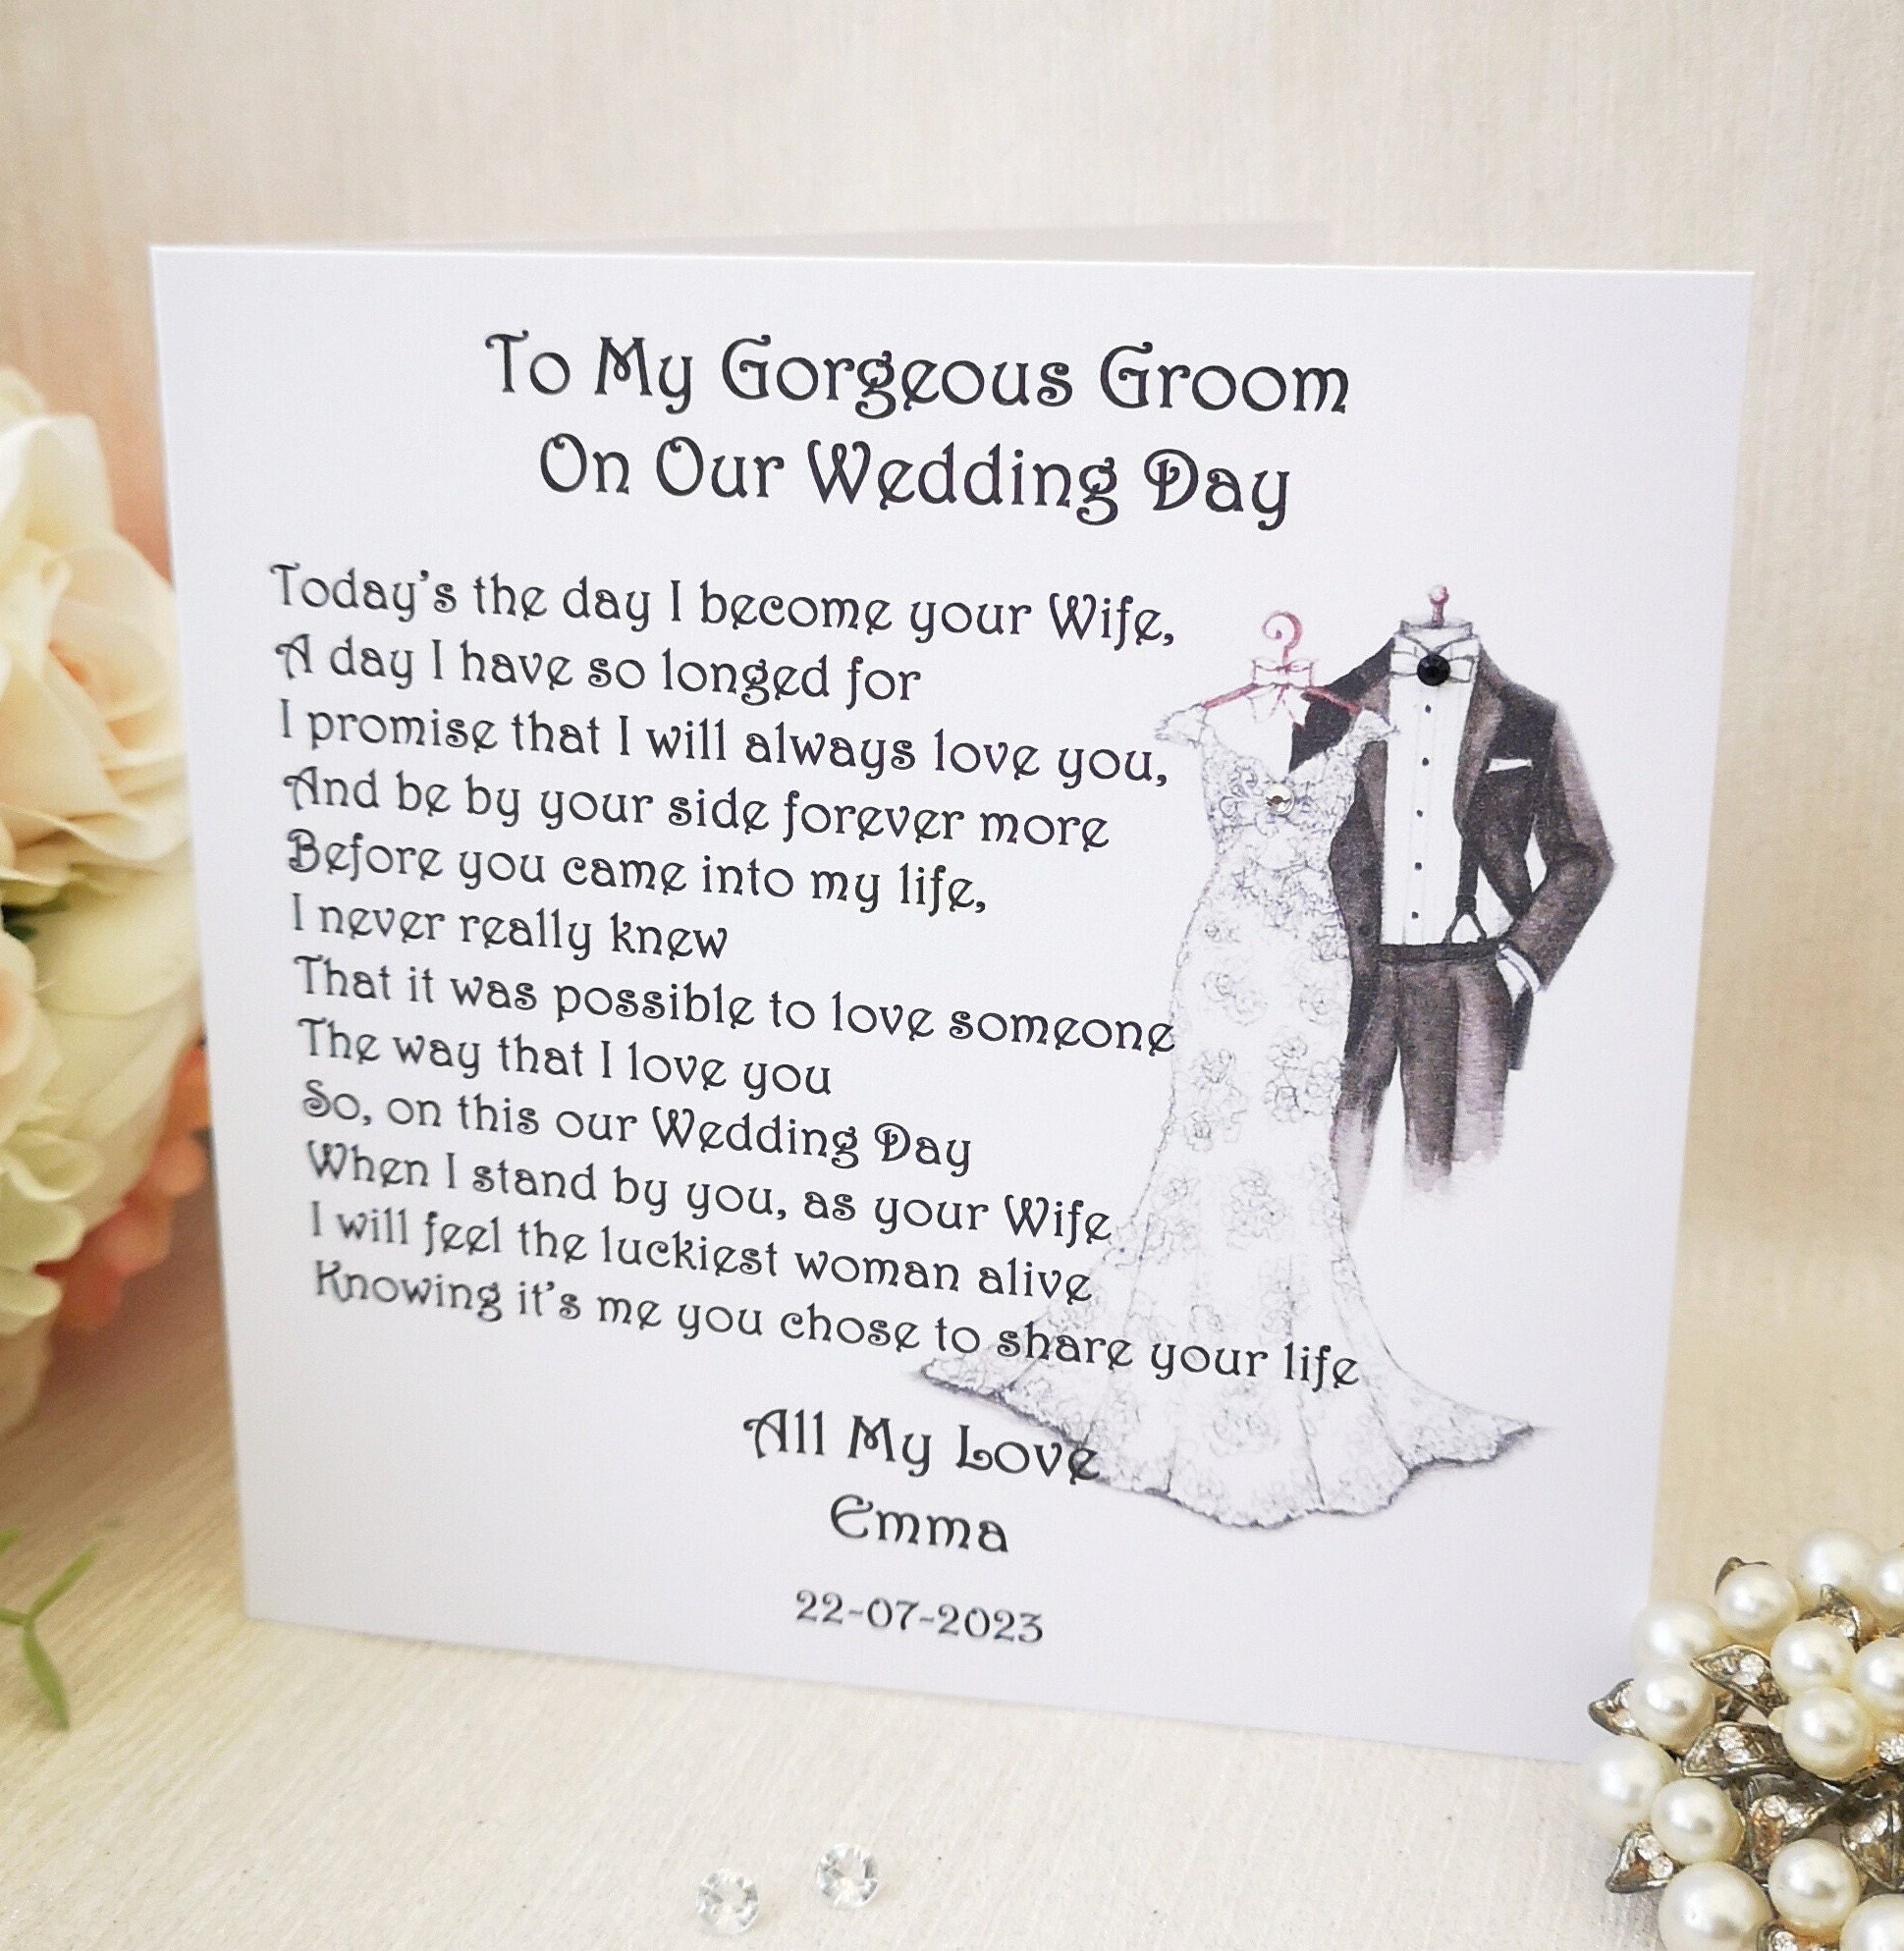 To My Gorgeous Groom
On Our Wedding Day
Today's the day I become your Wife,
A day I have so longed for
I promise that I will always love you,
And be by your side forever more
Before you came into my life,
I never really knew
That it was possible to love someone
The way that I love you
So, on this our Wedding Day
When I stand by you, as your Wife
I will feel the luckiest woman alive
Knowing it's me you chose to share your life
All My Love
Emma
22-07-2023